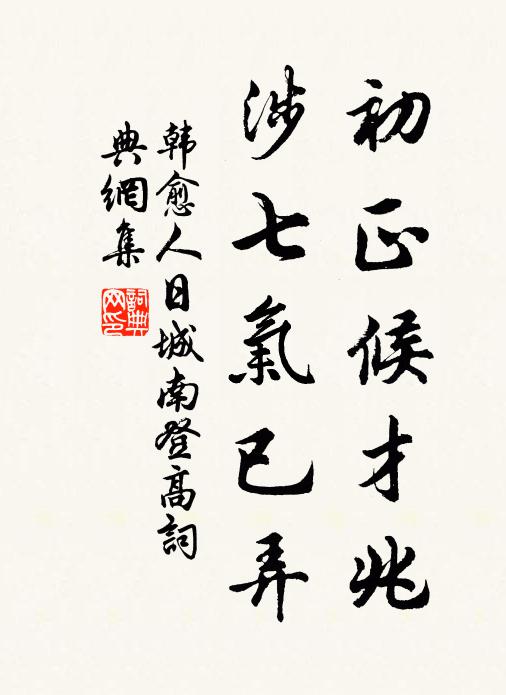 初正候才兆
涉七氣已弄
韓愈人日城南登高詞
典網集
詞典
网印